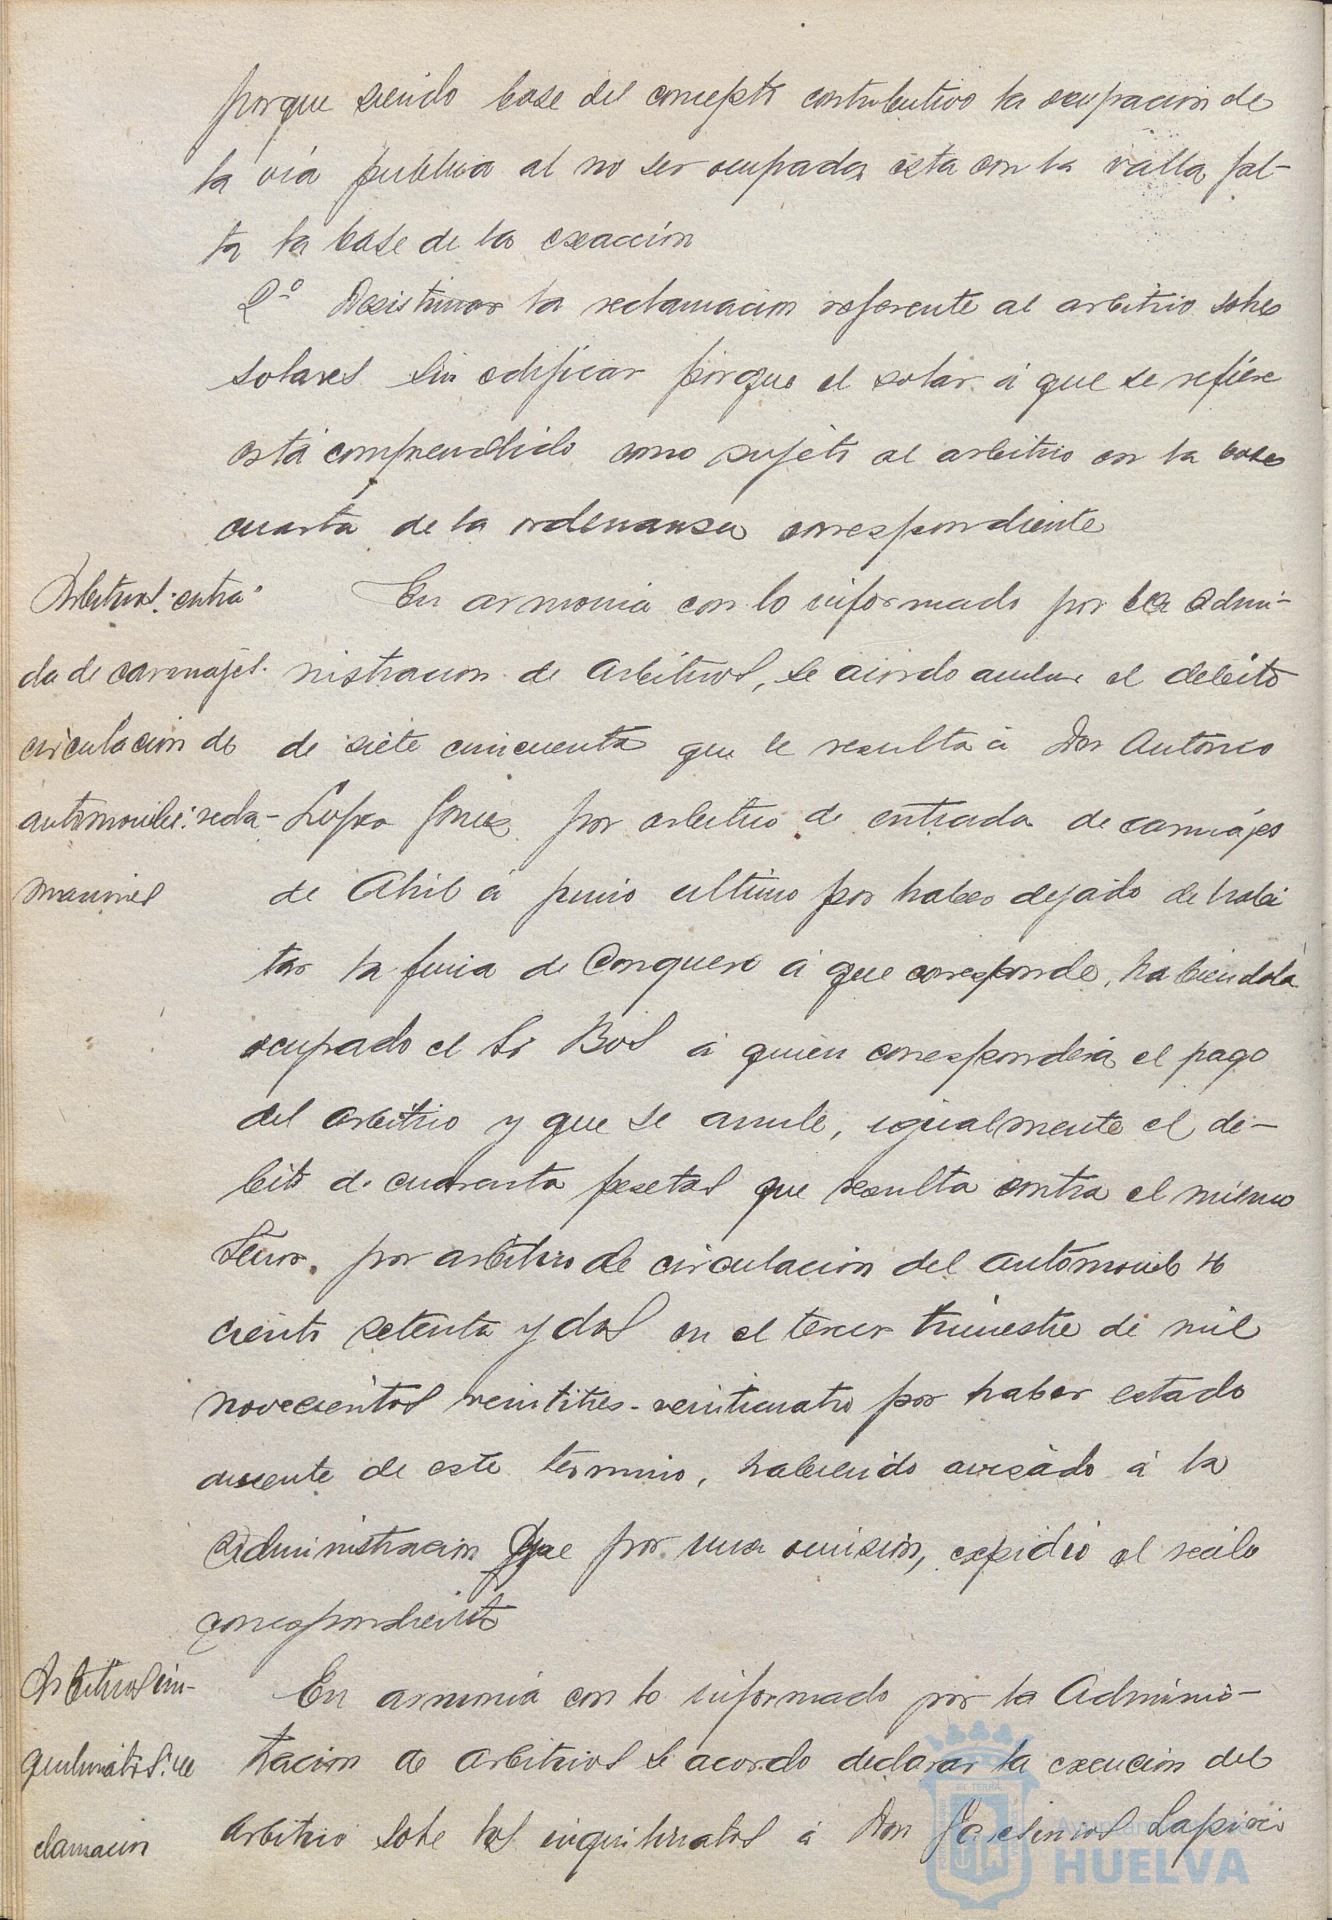 porque siendo base del concepto contributivo la ocupacion de
la via publica al no ser ocupada esta con la valla fal-
ta la base de la exacción
2º Desestimar la reclamacion referente al arbitrio sobre
solares sin edificar porque el solar á que se refiere
está comprendido como sujeto al arbitrio en la base
cuarta de la ordenansa correspondiente
Arbitrios: entra-
da de carruajes.
circulacion de
automoviles: recla-
maciones
En armonia con lo informado por la Admi-
nistracion de Arbitrios, se acordo anular el debito
de siete cincuenta que le resulta á Don Antonio
Lopez Gomez por arbitrio de entrada de carruajes
de Abril á junio ultimo por haber dejado de habi
tar la finca de Conquero á que corresponde, habiendola
ocupado el Sr Bos á quien corresponderá el pago
del arbitrio y que se anule, igualmente el de-
bito de cuarenta pesetas que resulta contra el mismo
Señor, por arbitrio de circulacion del automovil H
ciento setenta y dos en el tercer trimestre de mil
novecientos veintitres-veinticuatro por haber estado
ausente de este termino, habiendo avisado á la
Administracion que por una omision, expidió el recibo
correspondiente
Arbitrios in-
quilinatos: re
clamacion
En armonia con lo informado por la Adminis-
tracion de Arbitrios se acordo declarar la exencion del
Arbitrio sobe los inquilinatos á Don
Ayuntamiento de
HUELVA